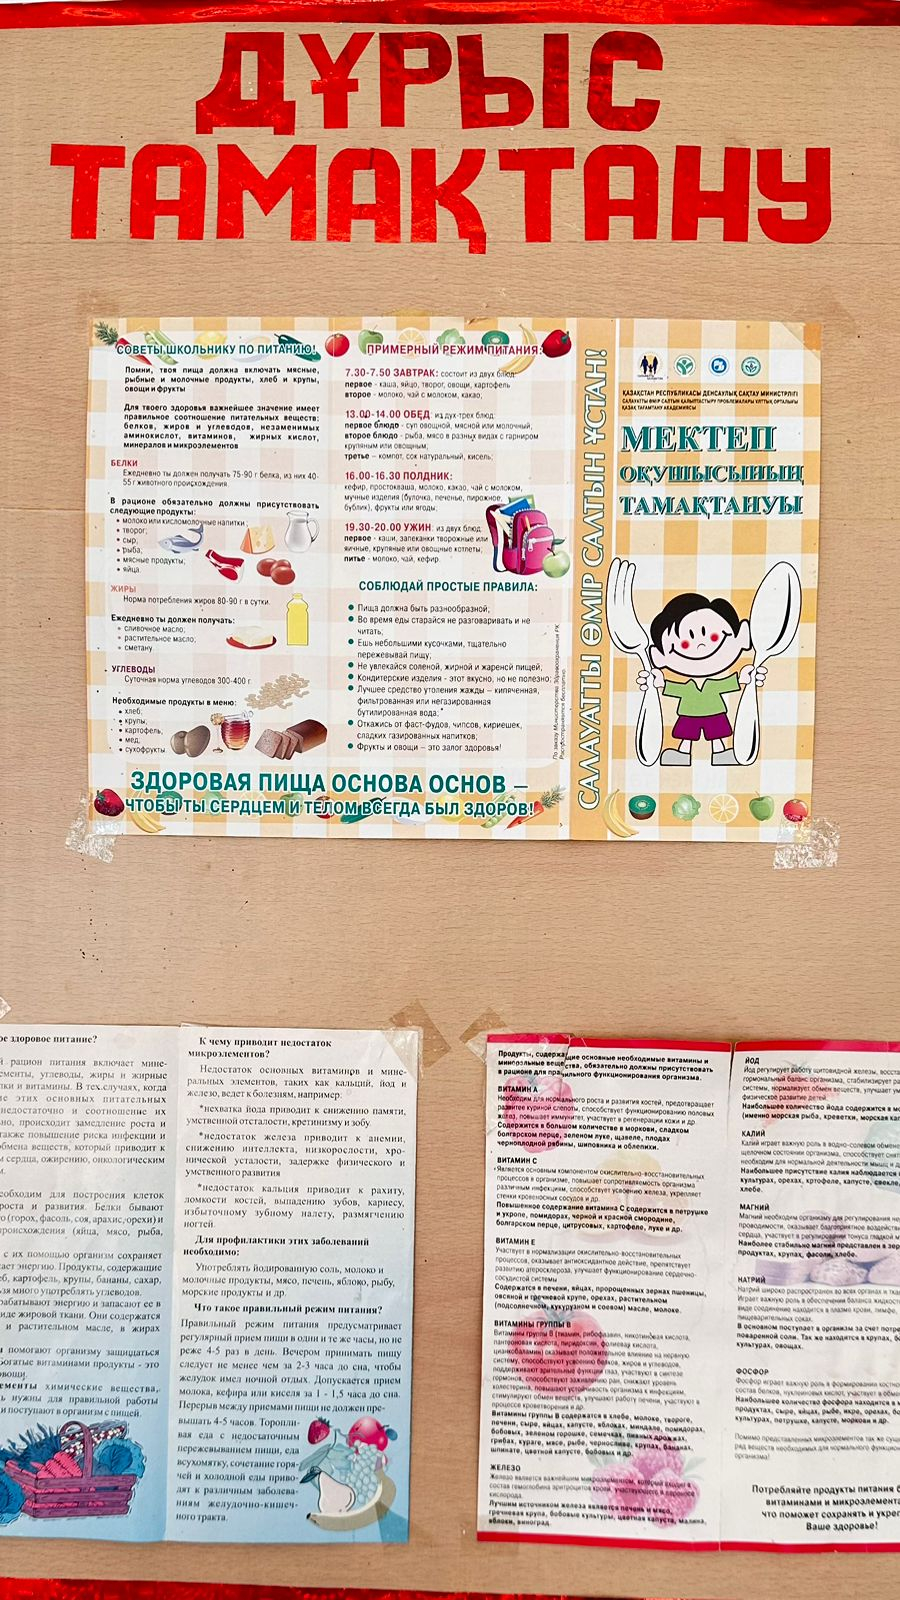 ДҰРЫС
ТАМАҚТАНУ
СОВЕТЫ ШКОЛЬНИКУ ПО ПИТАНИЮ!
Помни, твоя пища должна включать мясные,
рыбные и молочные продукты, хлеб и крупы,
овощи и фрукты
Для твоего здоровья важнейшее значение имеет
правильное соотношение питательных веществ:
белков, жиров и углеводов, незаменимых
аминокислот, витаминов, жирных кислот,
минералов и микроэлементов
БЕЛКИ
Ежедневно ты должен получать 75-90 г белка, из них 40-
55 г животного происхождения.
В рационе обязательно должны присутствовать
следующие продукты:
• молоко или кисломолочные напитки;
• творог;
• сыр;
• рыба;
• мясные продукты;
• яйца.
ЖИРЫ
Норма потребления жиров 80-90 г в сутки.
Ежедневно ты должен получать:
• сливочное масло;
• растительное масло;
• сметану.
УГЛЕВОДЫ
Суточная норма углеводов 300-400 г.
Необходимые продукты в меню:
• хлеб,
• крупы,
• картофель,
• мед,
• сухофрукты.
ПРИМЕРНЫЙ РЕЖИМ ПИТАНИЯ:
7.30-7.50 ЗАВТРАК: состоит из двух блюд:
первое - каша, яйцо, творог, овощи, картофель
второе - молоко, чай с молоком, какао;
13.00-14.00 ОБЕД: из дух-трех блюд:
первое блюдо - суп овощной, мясной или молочный,
второе блюдо - рыба, мясо в разных видах с гарниром
крупяным или овощным;
третье – компот, сок натуральный, кисель;
16.00-16.30 ПОЛДНИК:
кефир, простокваша, молоко, какао, чай с молоком,
мучные изделия (булочка, печенье, пирожное,
бублик), фрукты или ягоды;
19.30-20.00 УЖИН: из двух блюд:
первое - каши, запеканки творожные или
яичные, крупяные или овощные котлеты;
питье - молоко, чай, кефир.
СОБЛЮДАЙ ПРОСТЫЕ ПРАВИЛА:
• Пища должна быть разнообразной;
• Во время еды старайся не разговаривать и не
читать;
• Ешь небольшими кусочками, тщательно
пережевывай пищу;
• Не увлекайся соленой, жирной и жареной пищей;
• Кондитерские изделия - этот вкусно, но не полезно;
• Лучшее средство утоления жажды – кипяченная,
фильтрованная или негазированная
бутилированная вода;
• Откажись от фаст-фудов, чипсов, кириешек,
сладких газированных напитков;
• Фрукты и овощи – это залог здоровья!
ЗДОРОВАЯ ПИЩА ОСНОВА ОСНОВ –
ЧТОБЫ ТЫ СЕРДЦЕМ И ТЕЛОМ ВСЕГДА БЫЛ ЗДОРОВ!
По заказу Министерства Здравоохранения РК
Распространяется бесплатно.
САЛАУАТТЫ ӨМІР САЛТЫН ҰСТАН!
ҚАЗАҚСТАН РЕСПУБЛИКАСЫ ДЕНСАУЛЫҚ САҚТАУ МИНИСТРЛІГІ
САЛАУАТТЫ ӨМІР САЛТЫН ҚАЛЫПТАСТЫРУ ПРОБЛЕМАЛАРЫ ҰЛТТЫҚ ОРТАЛЫҒЫ
ҚАЗАҚ ТАҒАМТАНУ АКАДЕМИЯСЫ
МЕКТЕП
ОҚУШЫСЫНЫҢ
ТАМАҚТАНУЫ
ое здоровое питание?
й рацион питания включает мине-
ементы, углеводы, жиры и жирные
ки и витамины. В тех случаях, когда
е этих основных питательных
недостаточно и соотношение их
но, происходит замедление роста и
также повышение риска инфекции и
обмена веществ, который приводит к
м сердца, ожирению, онкологическим
еобходим для построения клеток
роста и развития. Белки бывают
о (горох, фасоль, соя, арахис, орехи) и
происхождения (яйца, мясо, рыба,
с их помощью организм сохраняет
сает энергию. Продукты, содержащие
еб, картофель, крупы, бананы, сахар.
ьзя много употреблять углеводов.
рабатывают энергию и запасают ее в
виде жировой ткани. Они содержатся
и растительном масле, в жирах
ы помогают организму защищаться
богатые витаминами продукты - это
овощи.
ементы химические вещества,
ь нужны для правильной работы
и поступают в организм с пищей.
К чему приводит недостаток
микроэлементов?
Недостаток основных витаминов и мине-
ральных элементов, таких как кальций, йод и
железо, ведет к болезням, например:
*нехватка йода приводит к снижению памяти,
умственной отсталости, кретинизму и зобу.
*недостаток железа приводит к анемии,
снижению интеллекта, низкорослости, хро-
нической усталости, задержке физического и
умственного развития
*недостаток кальция приводит к рахиту,
ломкости костей, выпадению зубов, кариесу,
избыточному зубному налету, размягчению
ногтей
Для профилактики этих заболеваний
необходимо:
Употреблять йодированную соль, молоко и
молочные продукты, мясо, печень, яблоко, рыбу,
морские продукты и др.
Что такое правильный режим питания?
Правильный режим питания предусматривает
регулярный прием пищи в одни и те же часы, но не
реже 4-5 раз в день. Вечером принимать пищу
следует не менее чем за 2-3 часа до сна, чтобы
желудок имел ночной отдых. Допускается прием
молока, кефира или киселя за 1 - 1,5 часа до сна.
Перерыв между приемами пищи не должен пре-
вышать 4-5 часов. Торопли-
вая еда с недостаточным
пережевыванием пищи, еда
всухомятку, сочетание горя-
чей и холодной еды приво-
дят к различным заболева-
ниям желудочно-кишеч-
ного тракта.
Продукты, содержащие основные необходимые витамины и
минеральные вещества, обязательно должны присутствовать
в рационе для правильного функционирования организма.
ВИТАМИН А
Необходим для нормального роста и развития костей, предотвращает
развитие куриной слепоты, способствует функционированию половых
желез, повышает иммунитет, участвует в регенерации кожи и др.
Содержится в большом количестве в моркови, сладком
болгарском перце, зеленом луке, щавеле, плодах
черноплодной рябины, шиповника и облепихи.
ВИТАМИН С
Является основным компонентом окислительно-восстановительных
процессов в организме, повышает сопротивляемость организма
различным инфекциям, способствует усвоению железа, укрепляет
стенки кровеносных сосудов и др.
Повышенное содержание витамина С содержится в петрушке
и укропе, помидорах, черной и красной смородине,
болгарском перце, цитрусовых, картофеле, луке и др.
ВИТАМИН Е
Участвует в нормализации окислительно-восстановительных
процессов, оказывает антиоксидантное действие, препятствует
развитию атеросклероза, улучшает функционирование сердечно-
сосудистой системы
Содержится в печени, яйцах, пророщенных зернах пшеницы,
овсяной и гречневой крупе, орехах, растительном
(подсолнечном, кукурузном и соевом) масле, молоке.
ВИТАМИНЫ ГРУППЫ В
Витамины группы В (тиамин, рибофлавин, никотиновая кислота,
пантеновая кислота, пиридоксин, фолиевая кислота,
цианкобаламин) оказывают положительное влияние на нервную
систему, способствуют усвоению белков, жиров и углеводов,
поддерживают зрительные функции глаз, участвуют в синтезе
гормонов, способствуют заживлению ран, снижают уровень
холестерина, повышают устойчивость организма к инфекциям,
стимулируют обмен веществ, улучшают работу печени, участвуют в
процессе кроветворения и др.
Витамины группы В содержатся в хлебе, молоке, твороге,
печени, сыре, яйцах, капусте, яблоках, миндале, помидорах,
бобовых, зеленом горошке, семечках, пивных дрожжах,
грибах, кураге, мясе, рыбе, черносливе, крупах, бананах,
шпинате, цветной капусте, бобовых и др.
ЖЕЛЕЗО
Железо является важнейшим микроэлементом, который входит в
состав гемоглобина эритроцитов крови, участвующего в переносе
кислорода.
Лучшим источником железа является печень и мясо,
гречневая крупа, бобовые культуры, цветная капуста, малина,
яблоки, виноград.
ЙОД
Йод регулирует работу щитовидной железы, восста
гормональный баланс организма, стабилизирует ра
системы, нормализует обмен веществ, улучшает ум
физическое развитие детей
Наибольшее количество йода содержится в мо
(именно морская рыба, креветки, морская кап
КАЛИЙ
Калий играет важную роль в водно-солевом обмене
щелочном состоянии организма, способствует снят
необходим для нормальной деятельности мышц и д
Наибольшее присутствие калия наблюдается в
культурах, орехах, картофеле, капусте, свекле
хлебе.
МАГНИЙ
Магний необходим организму для регулирования не
проводимости, оказывает благоприятное воздейств
сердца, участвует в регулировании тонуса гладкой м
Наиболее стабильно магний представлен в зер
продуктах, крупах, фасоли, хлебе.
НАТРИЙ
Натрий широко распространен во всех органах и тка
Играет важную роль в обеспечении баланса жидкост
виде соединений находится в плазме крови, лимфе,
пищеварительных соках.
В основном поступает в организм за счет потре
поваренной соли. Так же находится в крупах, б
культурах, овощах.
ФОСФОР
Фосфор играет важную роль в формировании костно
состав белков, нуклеиновых кислот, участвует в обме
Наибольшее количество фосфора находится в м
продуктах, сыре, яйцах, рыбе, икре, орехах, бо
культурах, петрушке, капусте, моркови и др.
Помимо представленных микроэлементов так же сущ
ряд веществ необходимых для нормального функцион
организма!
Потребляйте продукты питания б
витаминами и микроэлемента
что поможет сохранять и укреп
Ваше здоровье!